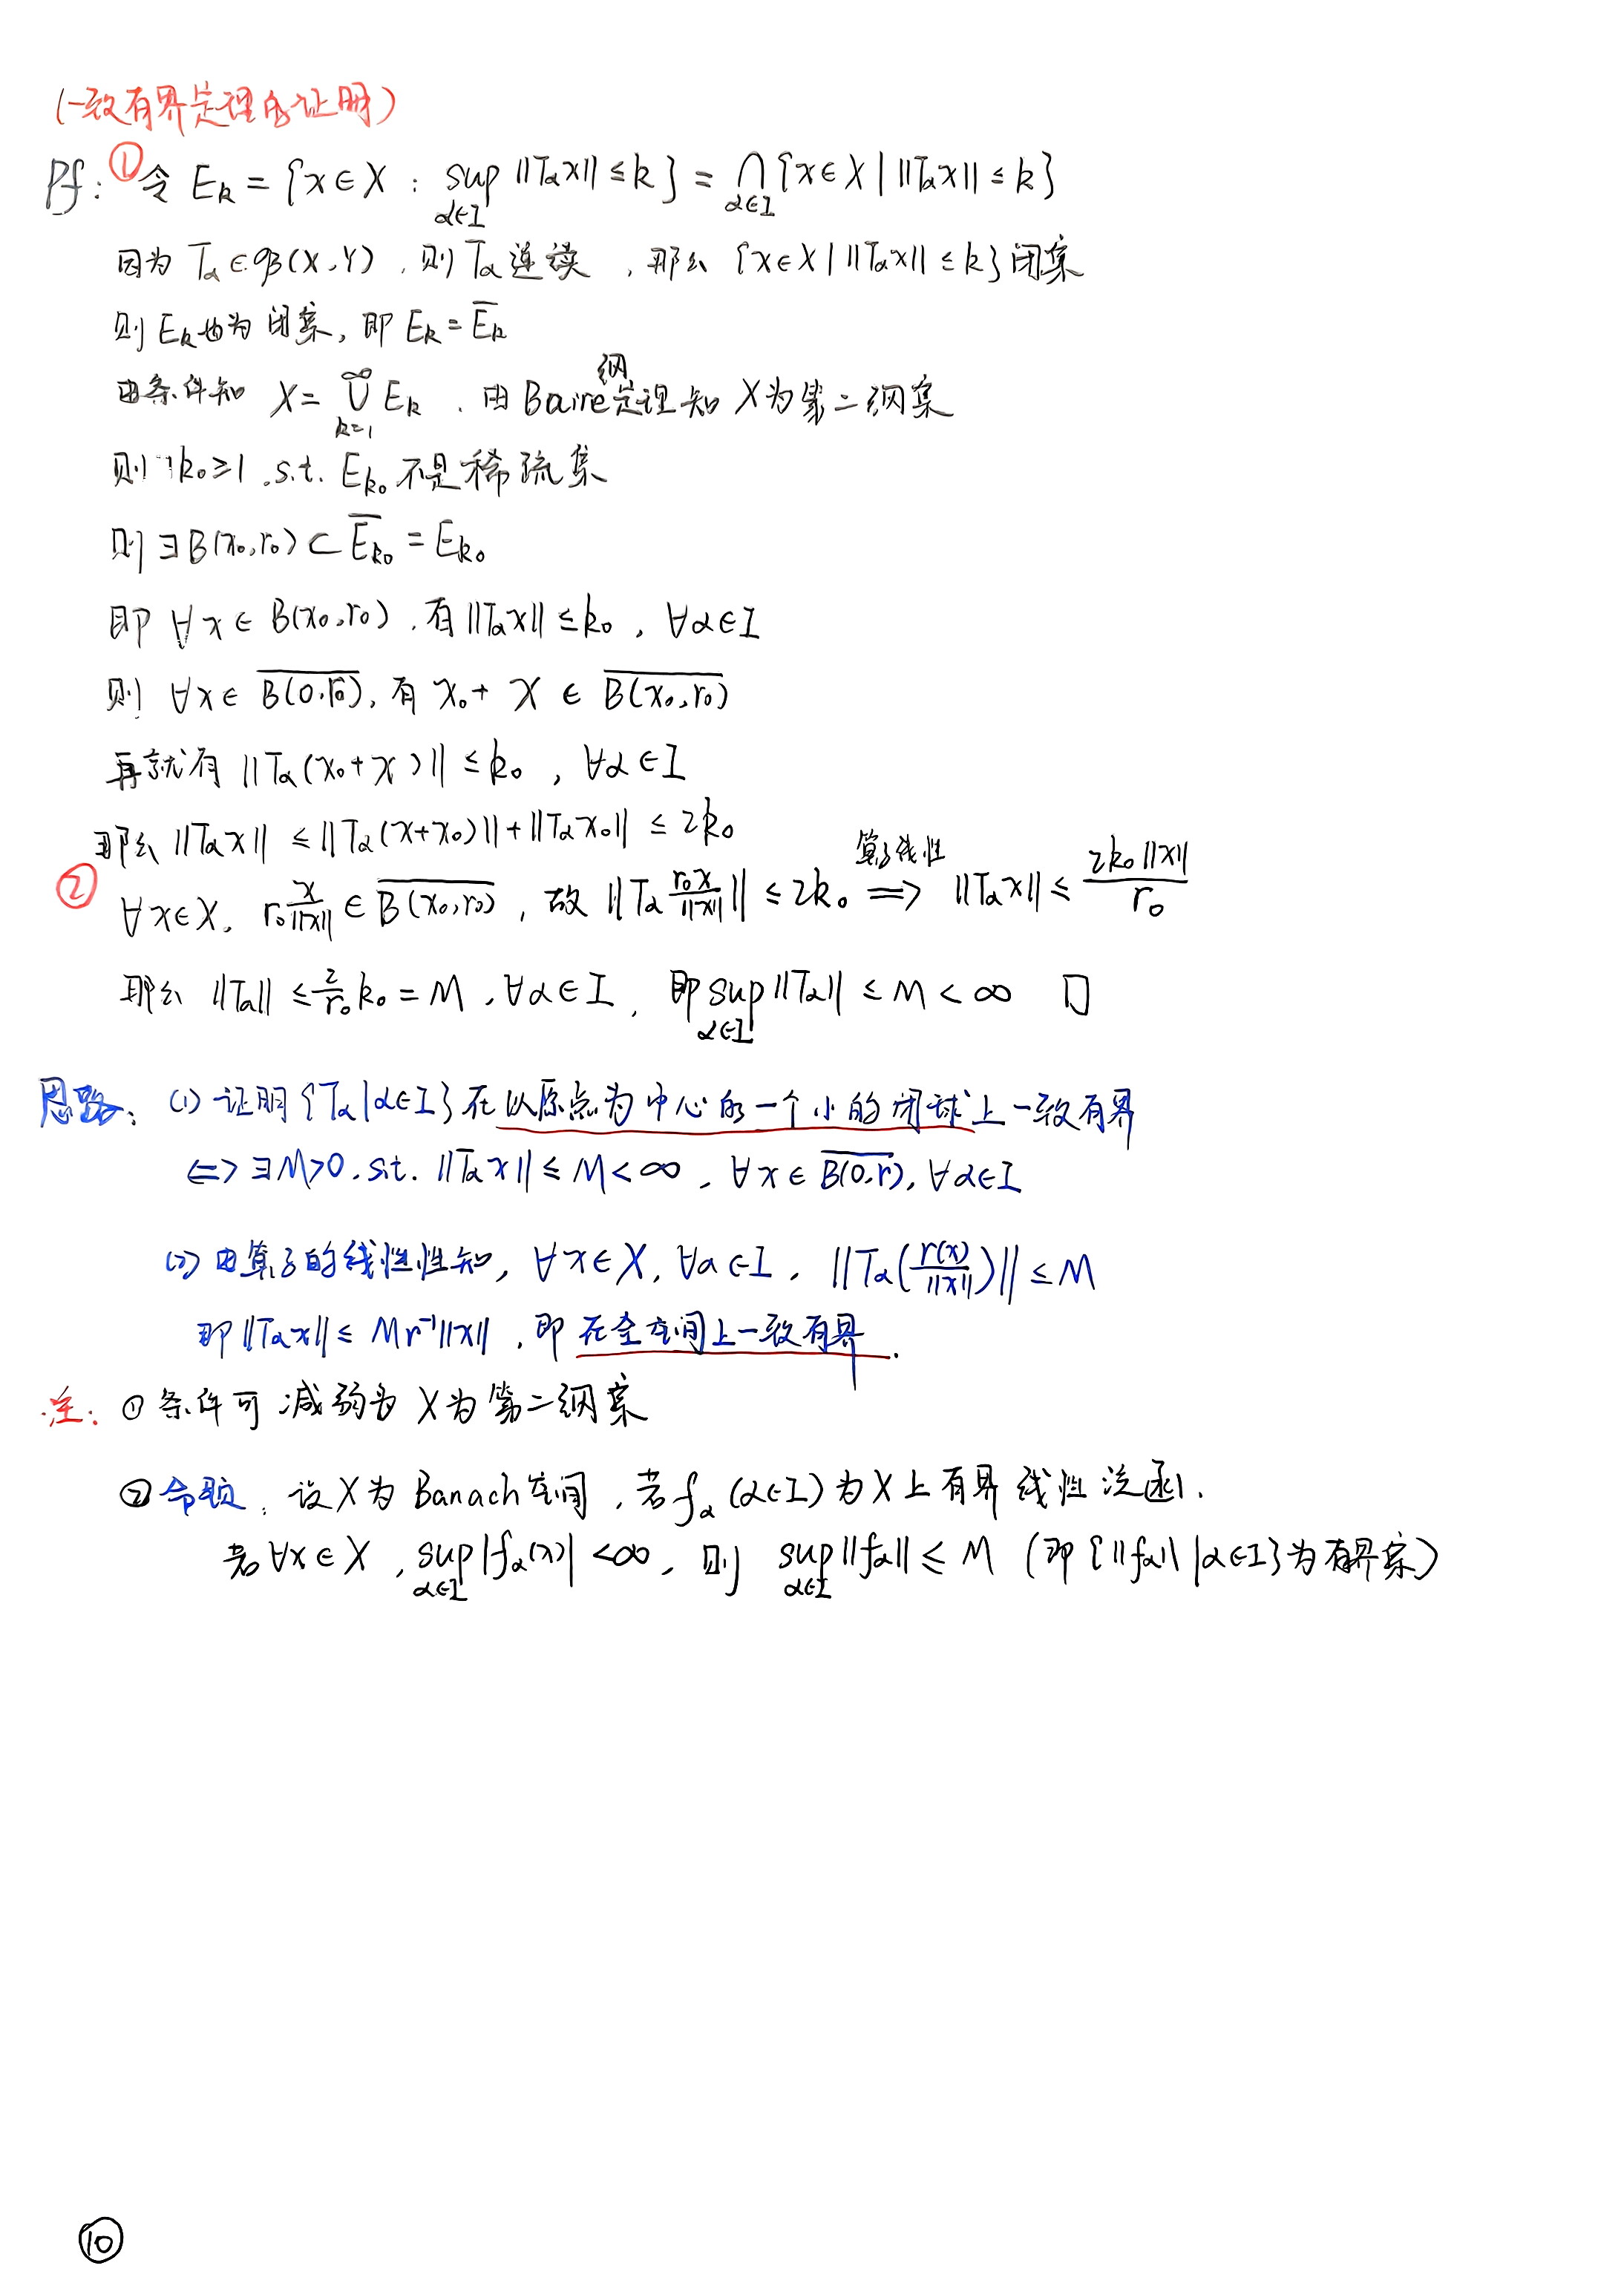 (一致有界定理的证明)
Pf: ① 令 E_k = {x∈X : sup_{α∈I} ||T_αx|| ≤ k} = ⋂_{α∈I} {x∈X | ||T_αx|| ≤ k}
因为 T_α ∈ 𝓑(X,Y), 则 T_α 连续, 那么 {x∈X | ||T_αx|| ≤ k} 闭集
则 E_k 也为闭集, 即 E_k = \overline{E_k}
由条件知 X = ⋃_{k=1}^{∞} E_k, 由 Baire 纲定理知 X 为第二纲集
则 ∃k₀≥1, s.t. E_{k₀} 不是稀疏集
则 ∃B(x₀,r₀) ⊂ \overline{E_{k₀}} = E_{k₀}
即 ∀x∈B(x₀,r₀), 有 ||T_αx|| ≤ k₀, ∀α∈I
则 ∀x∈\overline{B(0,r₀)}, 有 x₀+x ∈ \overline{B(x₀,r₀)}
再就有 ||T_α(x₀+x)|| ≤ k₀, ∀α∈I
那么 ||T_αx|| ≤ ||T_α(x+x₀)|| + ||T_αx₀|| ≤ 2k₀
② ∀x∈X, r₀\frac{x}{||x||} ∈ \overline{B(x₀,r₀)}, 故 ||T_α \frac{r₀x}{||x||}|| ≤ 2k₀ \overset{算子线性}{⟹} ||T_αx|| ≤ \frac{2k₀||x||}{r₀}
那么 ||T_α|| ≤ \frac{2}{r₀}k₀ = M, ∀α∈I, 即 sup_{α∈I} ||T_α|| ≤ M < ∞ □
思路: (1) 证明 {T_α|α∈I} 在以原点为中心的一个小的闭球上一致有界
⟺ ∃M>0, s.t. ||T_αx|| ≤ M < ∞, ∀x∈\overline{B(0,r)}, ∀α∈I
(2) 由算子的线性性知, ∀x∈X, ∀α∈I, ||T_α(\frac{r(x)}{||x||})|| ≤ M
即 ||T_αx|| ≤ Mr⁻¹||x||, 即在全空间上一致有界.
注: ① 条件可减弱为 X 为第二纲集
② 命题: 设 X 为 Banach 空间, 若 f_α (α∈I) 为 X 上有界线性泛函.
若 ∀x∈X, sup_{α∈I} |f_α(x)| < ∞, 则 sup_{α∈I} ||f_α|| ≤ M (即 {||f_α|| | α∈I} 为有界集)
⑩